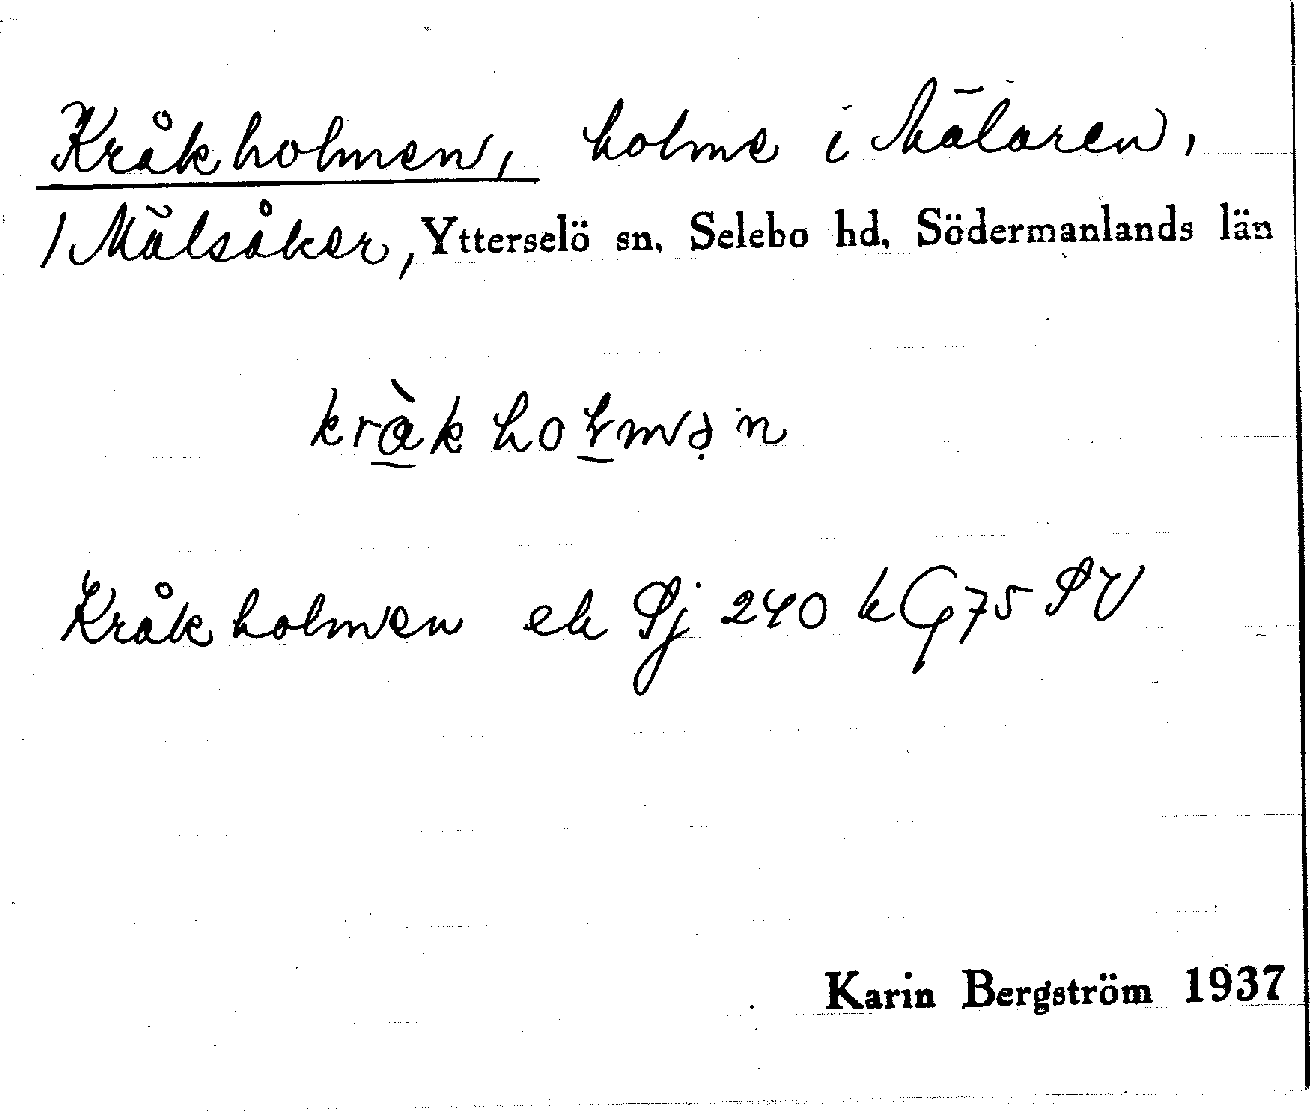 Kråkholmen, holme i Mälaren,
/ Mälsåker, Ytterselö sn, Selebo hd, Södermanlands län
kràk holmən
Kråkholmen ek Sj 240 k G 75 SV
Karin Bergström 1937